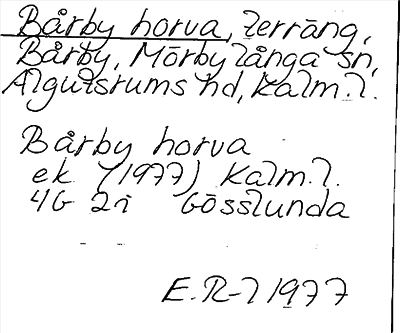 Bårby horva, terräng,
Bårby, Mörbylånga sn,
Algutsrums hd, Kalm.l.
Bårby horva
ek (1977) Kalm.l.
4G 2i Gösslunda
E.R-l 1977